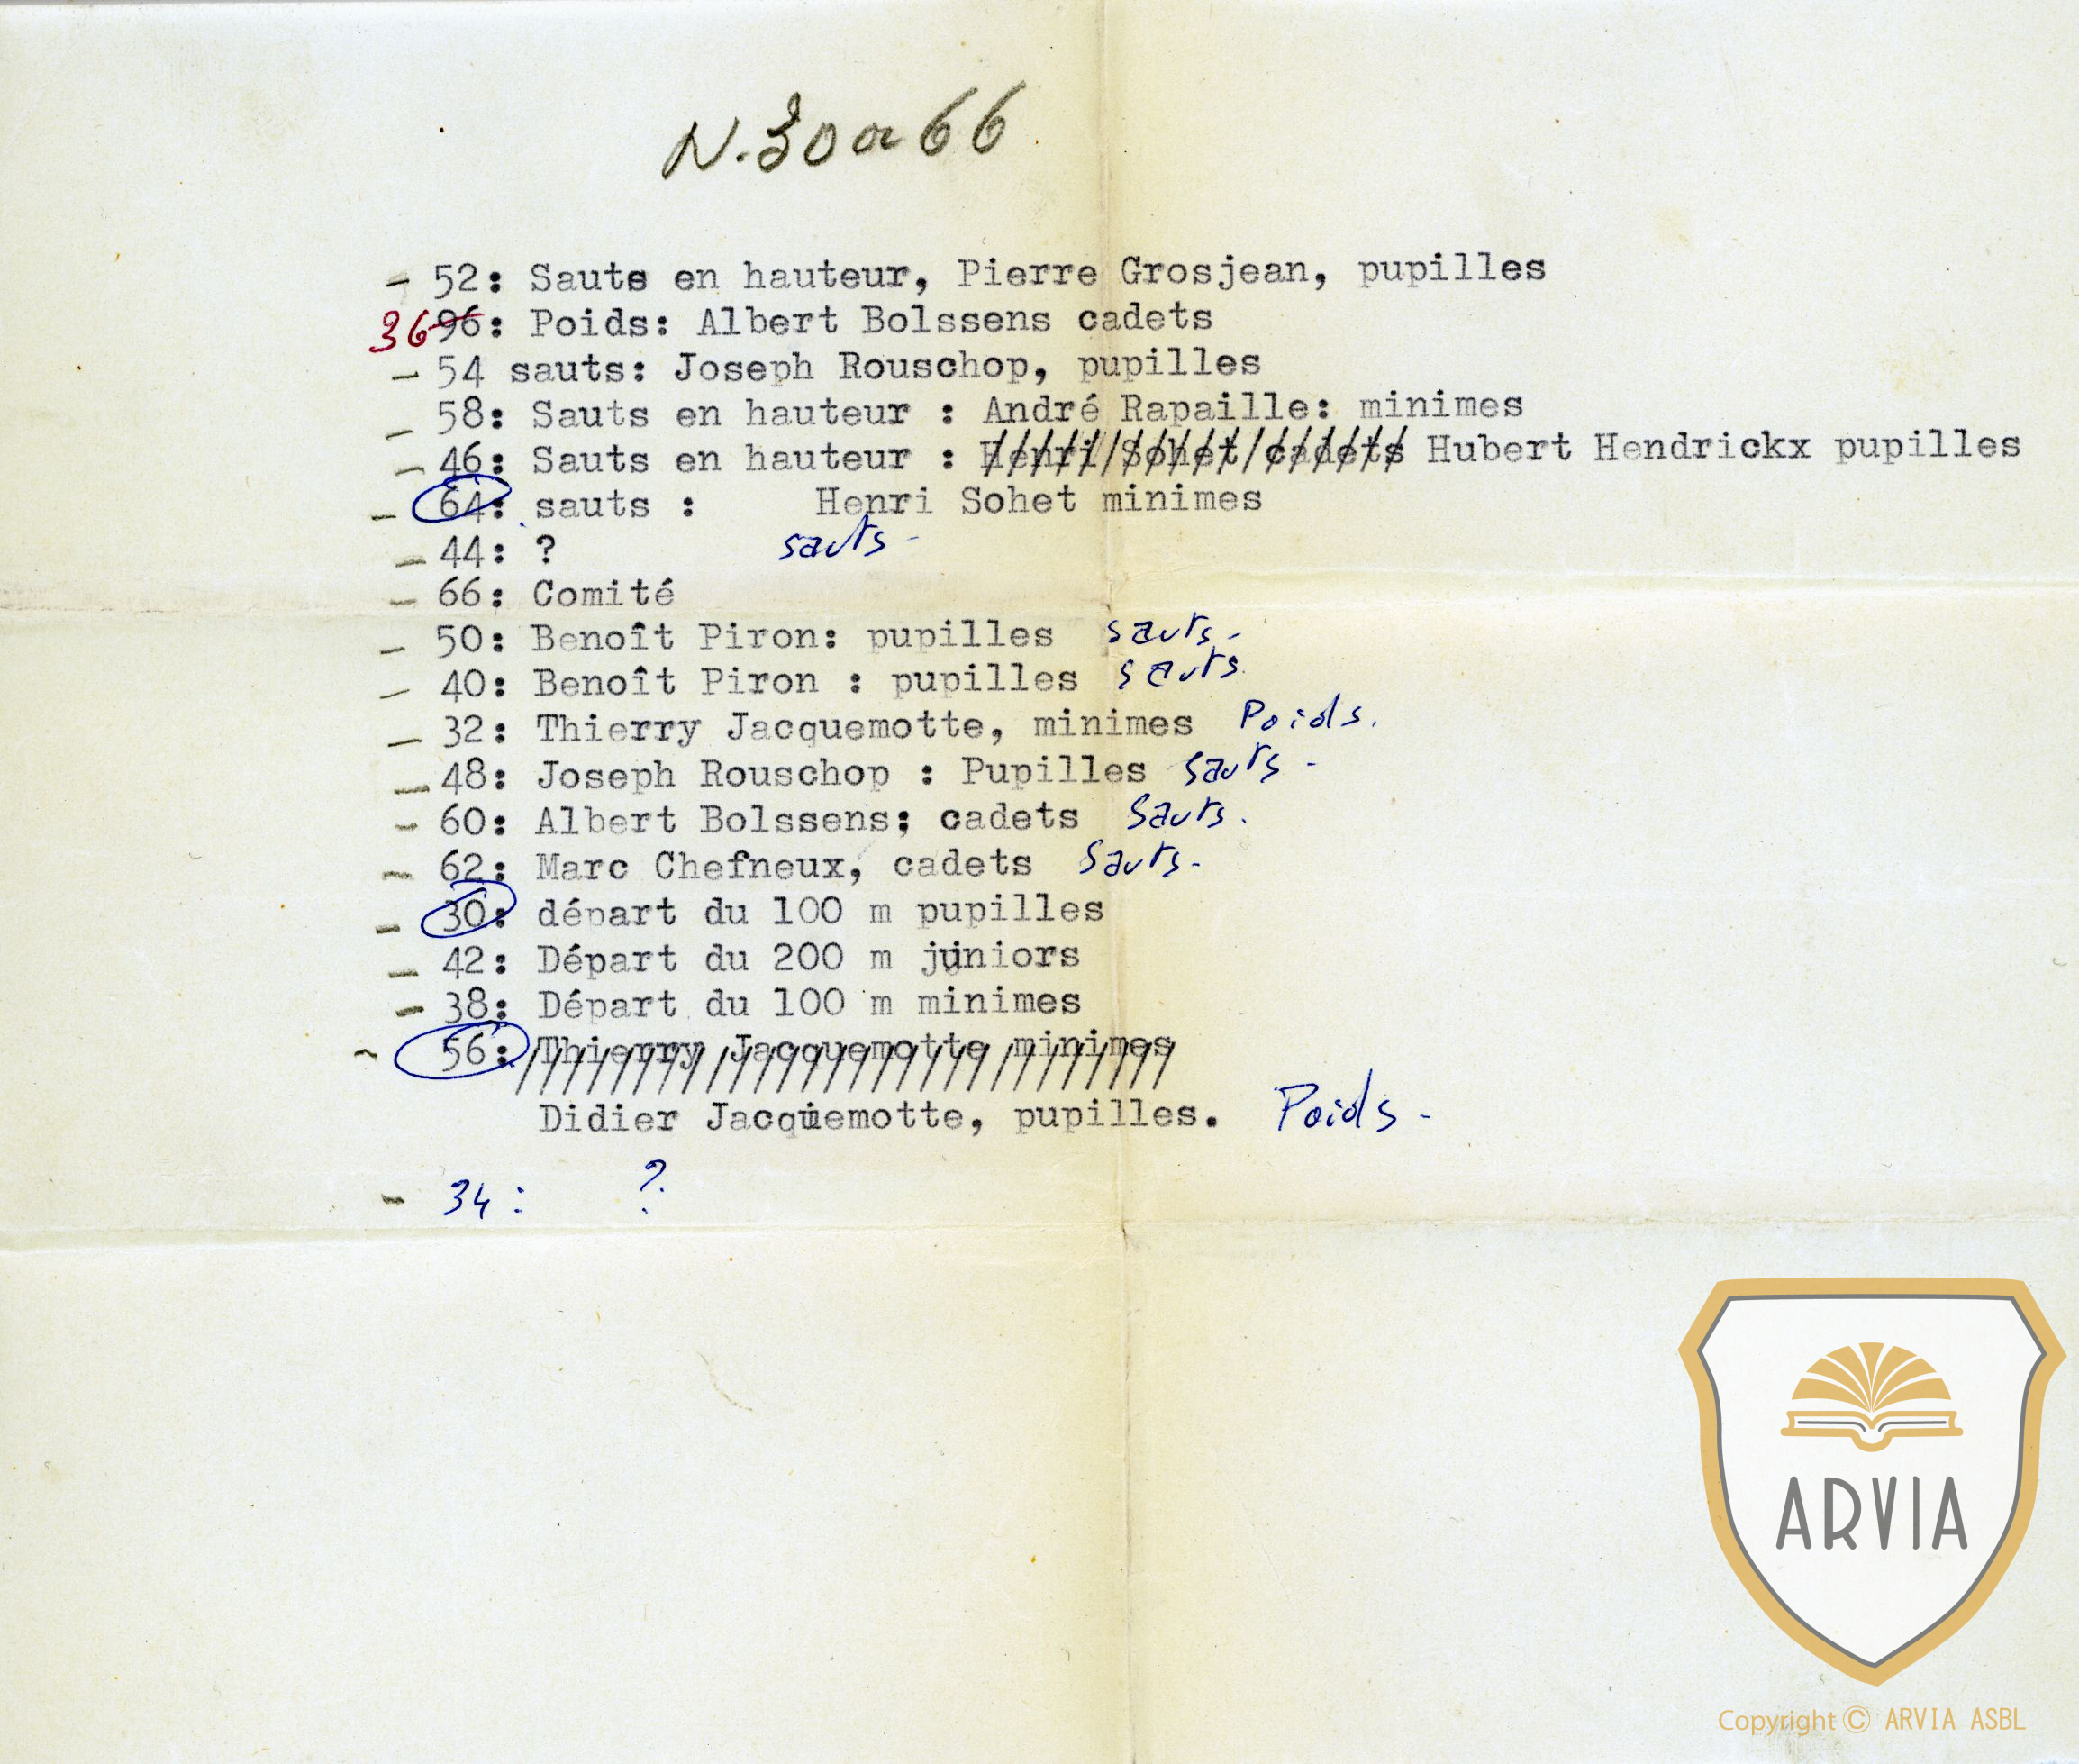 N. 30 a 66
- 52: Sauts en hauteur, Pierre Grosjean, pupilles
36 96: Poids: Albert Bolssens cadets
- 54 sauts: Joseph Rouschop, pupilles
- 58: Sauts en hauteur : André Rapaille: minimes
- 46: Sauts en hauteur : Henri/Sohet/cadets Hubert Hendrickx pupilles
- 64: sauts : Henri Sohet minimes
- 44: ? sauts -
- 66: Comité
- 50: Benoît Piron: pupilles sauts -
- 40: Benoît Piron : pupilles sauts.
- 32: Thierry Jacquemotte, minimes Poids.
- 48: Joseph Rouschop : Pupilles sauts -
- 60: Albert Bolssens; cadets Sauts.
- 62: Marc Chefneux, cadets Sauts -
- 30: départ du 100 m pupilles
- 42: Départ du 200 m juniors
- 38: Départ du 100 m minimes
- 56: Thierry Jacquemotte minimes
Didier Jacquemotte, pupilles. Poids -
- 34 : ?
ARVIA
Copyright © ARVIA ASBL